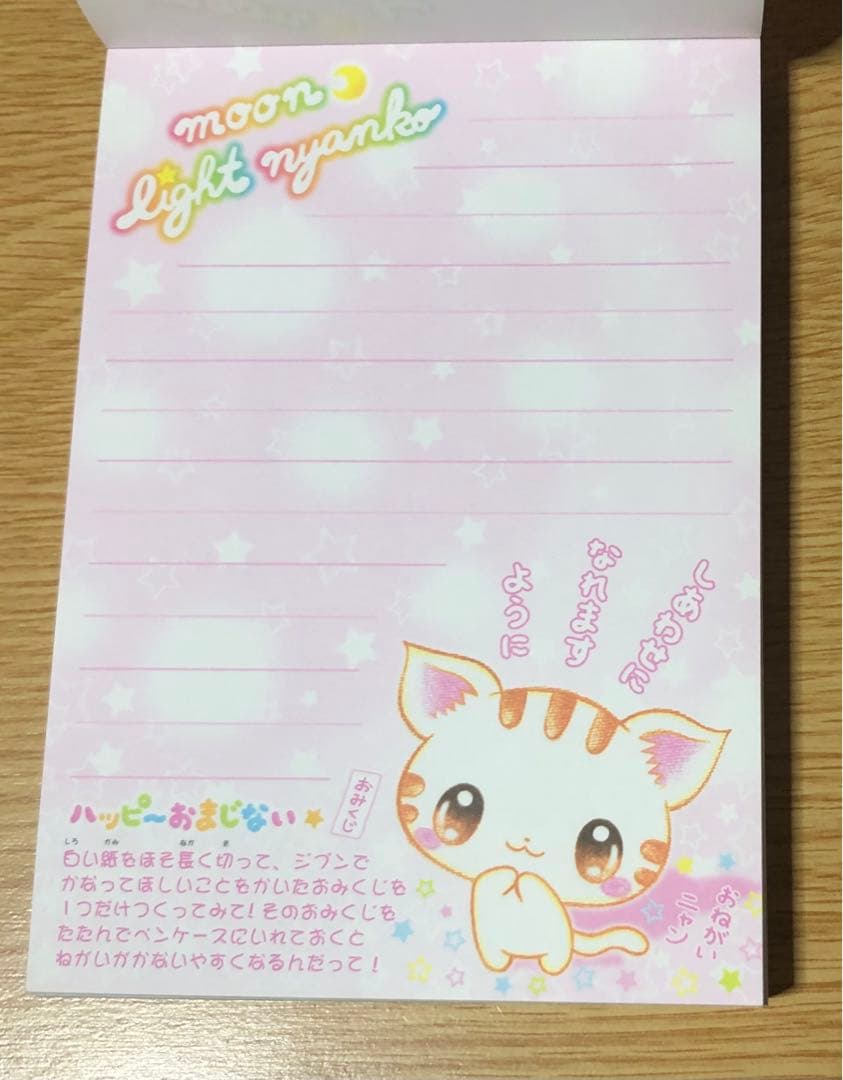 moon
light nyanko
しあわせに
なれます
ように
おみくじ
ハッピ〜おまじない
しろ かみ なが き
白い紙をほそ長く切って、ジブンで
かなってほしいことをかいたおみくじを
1つだけつくってみて!そのおみくじを
たたんでペンケースにいれておくと
ねがいがかないやすくなるんだって!
おねがい
ニャン